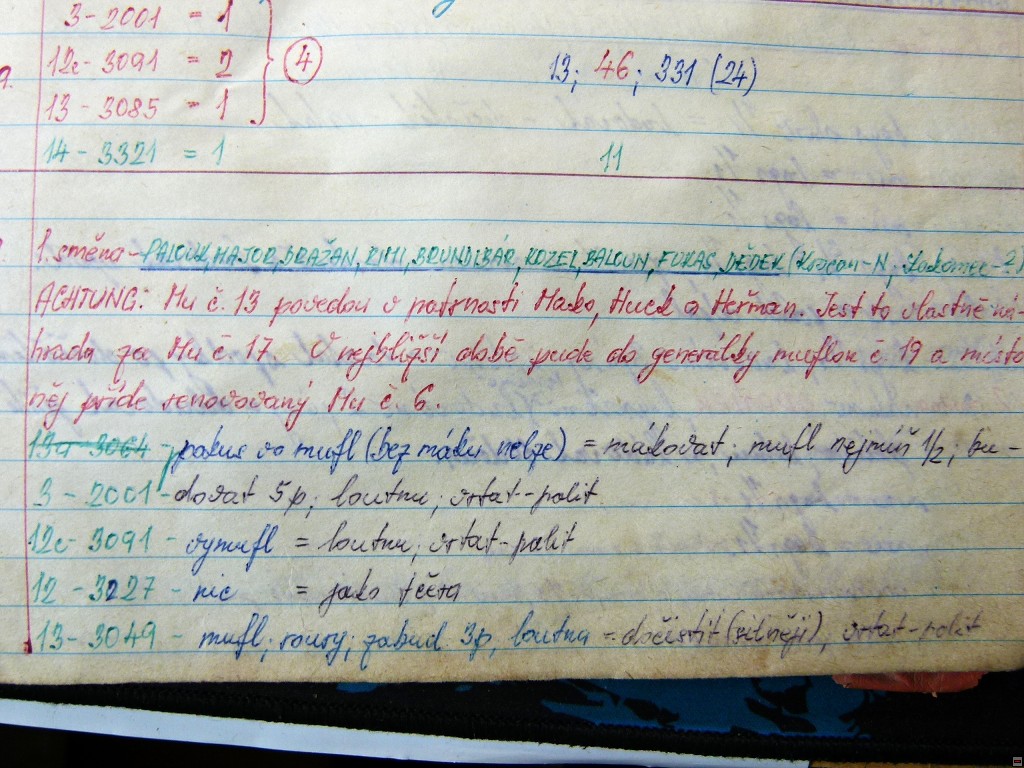 3-2001 = 1
12c-3091 = 2
13-3085 = 1
4
13; 46; 331 (24)
14-3321 = 1
11
1. směna - PALOUK, MAJOR, DRAŽAN, RIMI, BRUNDIBÁR, KOZEL, BALOUN, FUKAS, DĚDEK (
ACHTUNG: Mu č. 13 povedou v patrnosti Mako, Huck a Heřman. Jest to vlastně ná-
hrada za Mu č 17. V nejbližší době pude do generálky muflon č 19 a místo
něj příde renovovaný Mu č. 6.
13a-3064 - pokus vo mufl (bez máku nelze) = mákovat; mufl nejmíň 1/2; bu-
3-2001 - dovat 5p; loutnu; vrtat-palit
12c-3091 - vymufl = loutnu; vrtat-palit
12-3227 - nic = jako včera
13-3049 - mufl; sousy; zabud. 3p, loutnu = dočistit (silněji), vrtat-palit